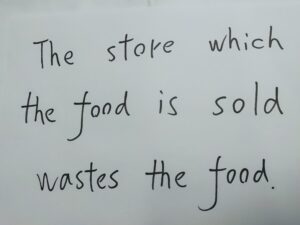 The store which
the food is sold
wastes the food.